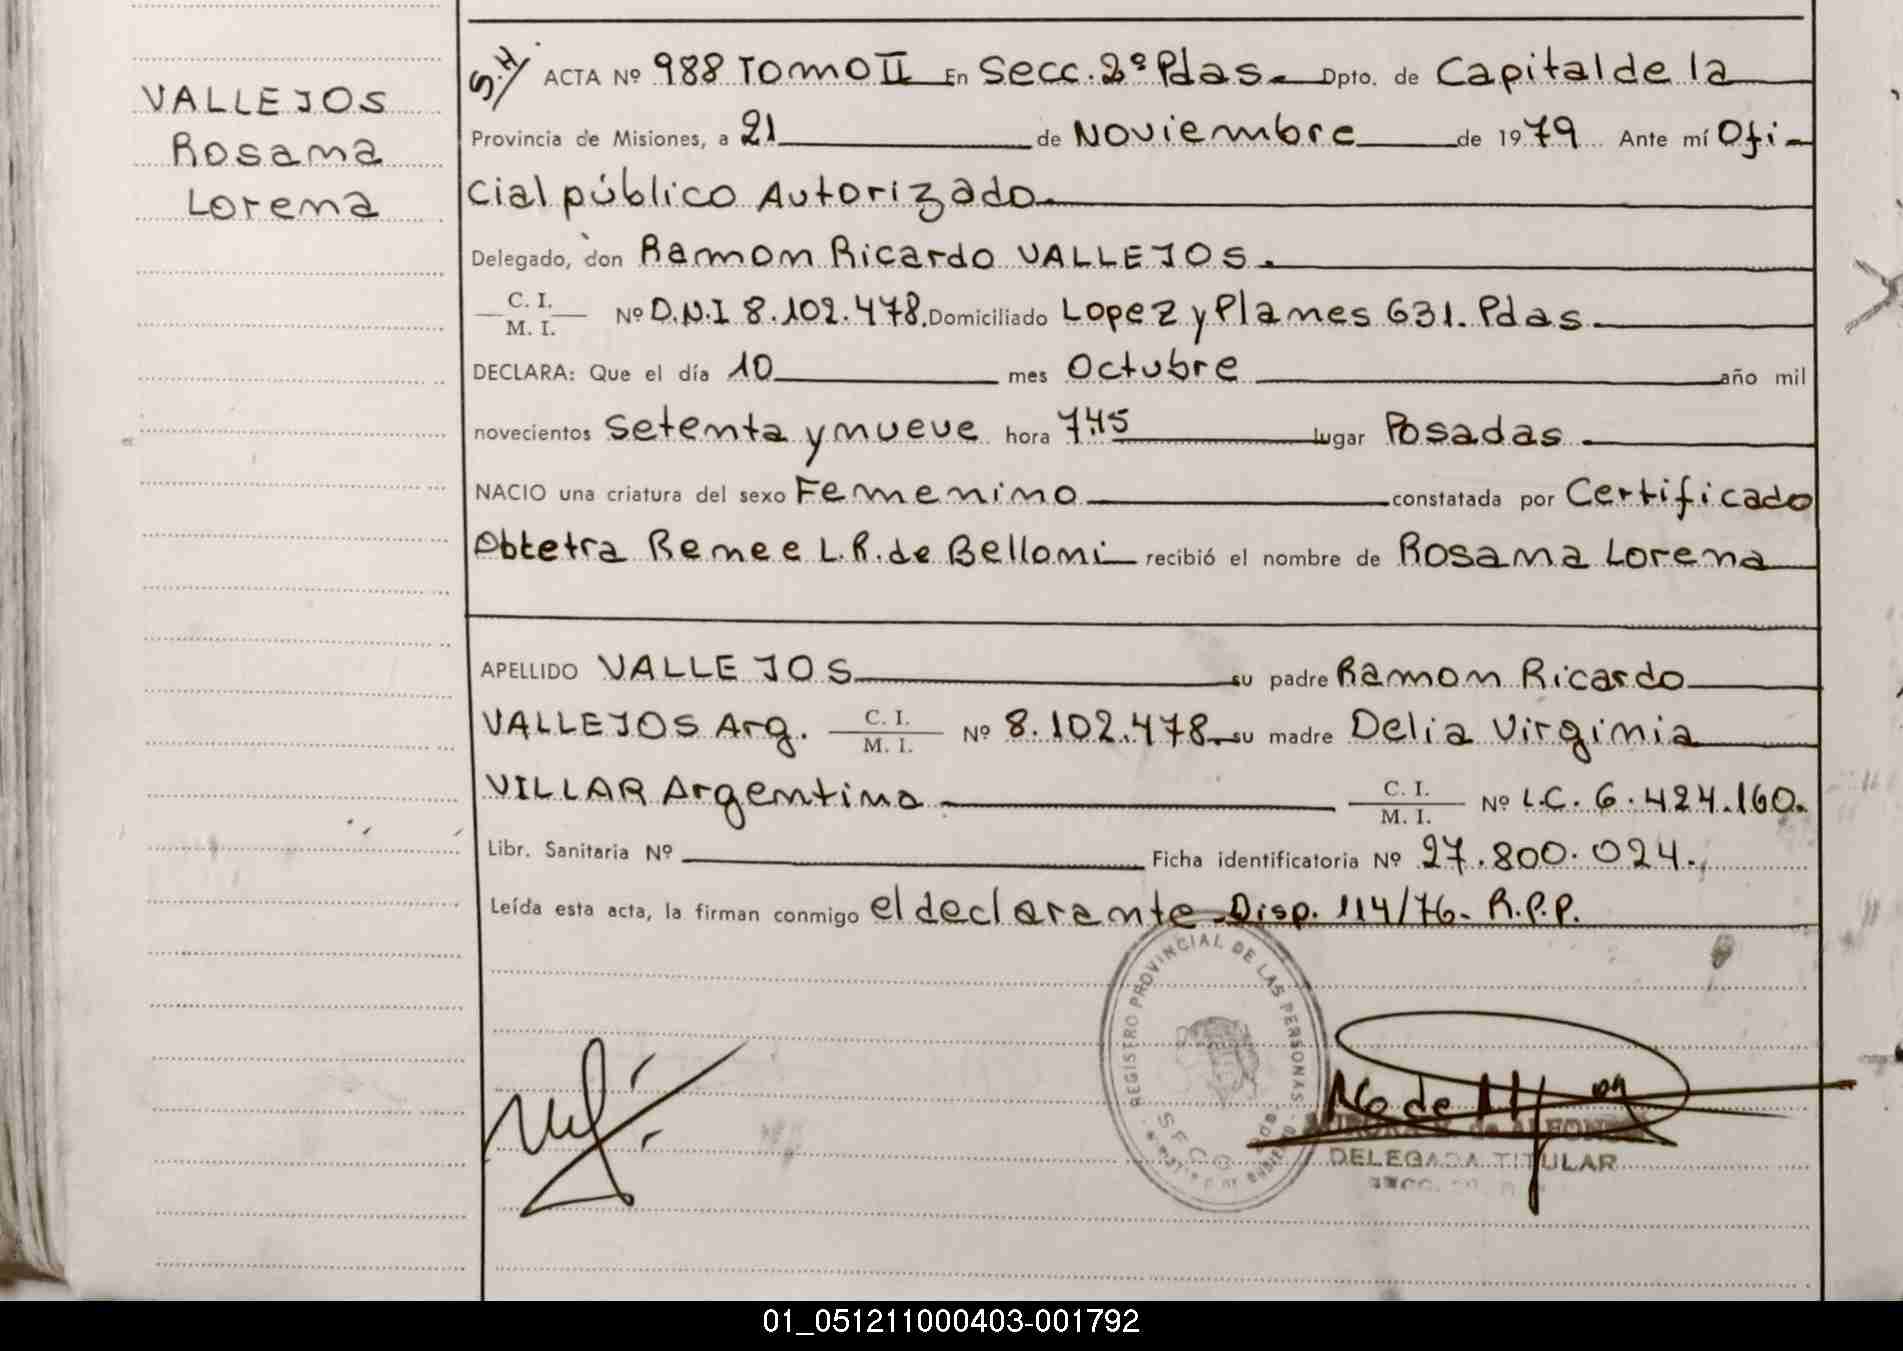 VALLEJOS
Rosana
Lorena
S.H/ ACTA Nº 988 Tomo II En Secc. 2º Pdas. Dpto. de Capital de la
Provincia de Misiones, a 21 de Noviembre de 1979 Ante mí Ofi-
cial público Autorizado.
Delegado, don Ramon Ricardo VALLEJOS.
C. I.
M. I. Nº D.N.I 8.102.478. Domiciliado Lopez y Planes 631. Pdas.
DECLARA: Que el día 10 mes Octubre año mil
novecientos setenta y nueve hora 7.45 lugar Posadas.
NACIO una criatura del sexo Femenino constatada por Certificado
Obtetra Renee L.R. de Belloni recibió el nombre de Rosana Lorena
APELLIDO VALLEJOS su padre Ramon Ricardo
VALLEJOS Arg. C. I. M. I. Nº 8.102.478. su madre Delia Virginia
VILLAR Argentina C. I. M. I. Nº L.C. 6.424.160.
Libr. Sanitaria Nº Ficha identificatoria Nº 27.800.024.
Leída esta acta, la firman conmigo el declarante. Disp. 114/76. R.P.P.
REGISTRO PROVINCIAL DE LAS PERSONAS
de ALFONSO
DELEGADA TITULAR
01_051211000403-001792